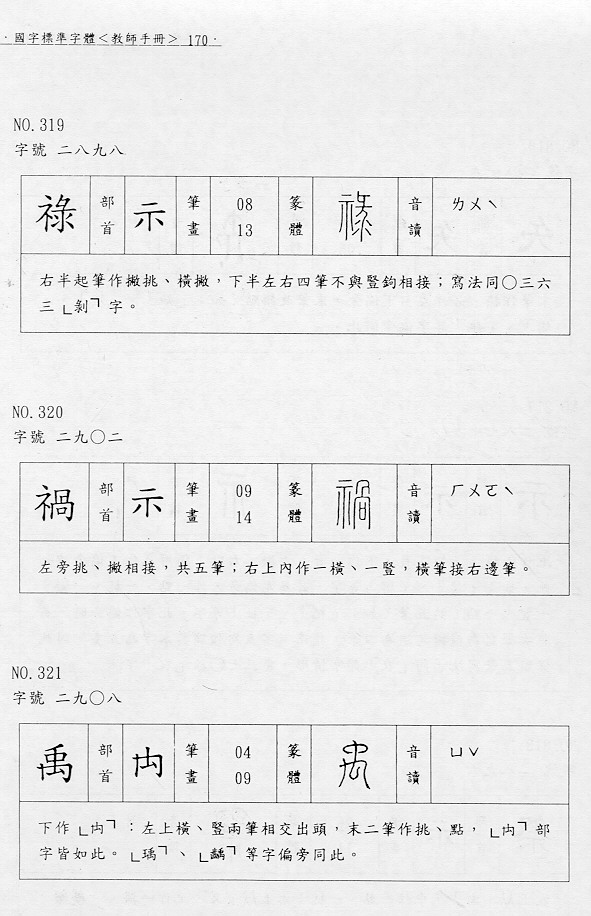 ·國字標準字體＜教師手冊＞ 170·
NO.319
字號 二八九八
祿 部首 示 筆畫 08 13 篆體 祿 音讀 ㄌㄨˋ
右半起筆作撇挑、橫撇，下半左右四筆不與豎鉤相接；寫法同〇三六
三「剝」字。
NO.320
字號 二九〇二
禍 部首 示 筆畫 09 14 篆體 禍 音讀 ㄏㄨㄛˋ
左旁挑、撇相接，共五筆；右上內作一橫、一豎，橫筆接右邊筆。
NO.321
字號 二九〇八
禹 部首 禸 筆畫 04 09 篆體 禹 音讀 ㄩˇ
下作「禸」：左上橫、豎兩筆相交出頭，末二筆作挑、點，「禸」部
字皆如此。「瑀」、「齲」等字偏旁同此。